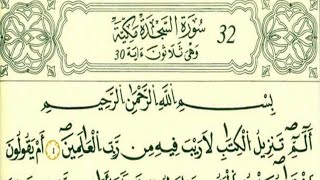 32 سُورَةُ السَّجْدَةِ مَكِّيَّةٌ
وَهِيَ ثَلَاثُونَ ءَايَةً 30
بِسْمِ اللَّهِ الرَّحْمَٰنِ الرَّحِيمِ
أَلَٓمِّٓ تَنزِيلُ الْكِتَٰبِ لَا رَيْبَ فِيهِ مِن رَّبِّ الْعَٰلَمِينَ ١ أَمْ يَقُولُونَ